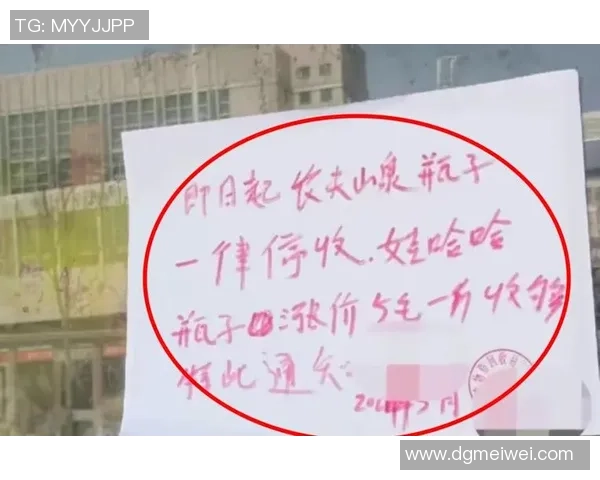 TG: MYYJJPP
即日起 农夫山泉 瓶子
一律停收.娃哈哈
瓶子 涨价 5毛一斤 收够
特此通知:
www.dgmeiwei.com